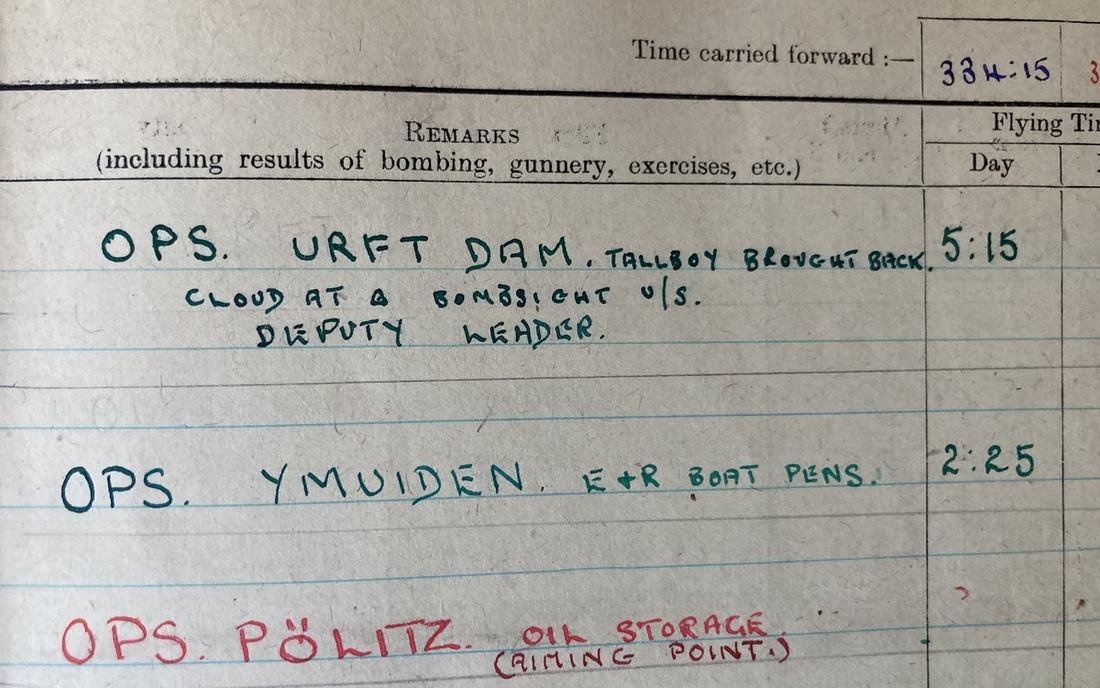 Time carried forward :— 334:15 3
REMARKS
(including results of bombing, gunnery, exercises, etc.)
Flying Ti
Day
OPS. URFT DAM. TALLBOY BROUGHT BACK. 5:15
CLOUD AT & BOMBSIGHT U/S.
DEPUTY LEADER.
OPS. YMUIDEN. E+R BOAT PENS. 2:25
OPS. PÖLITZ. OIL STORAGE.
(AIMING POINT.)